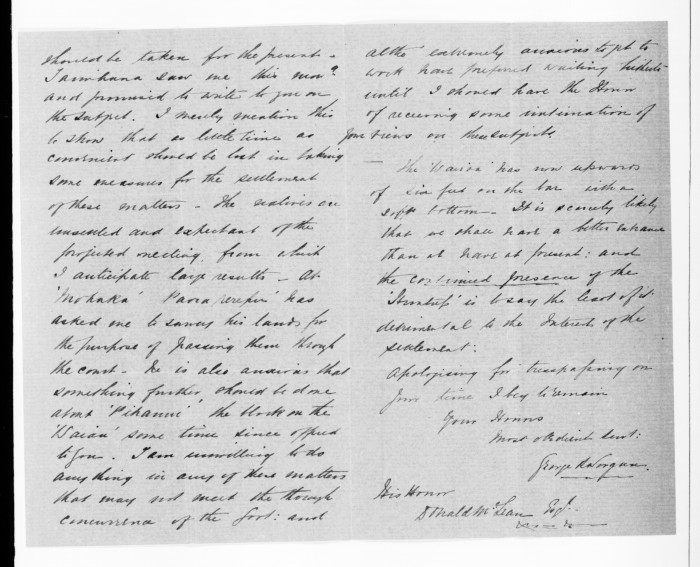 should be taken for the present -
Tamihana saw me this morn.g
and promised to write to you on
the subject. I merely mention this
to show that as little time as
convenient should be lost in taking
some measures for the settlement
of these matters - The natives are
unsettled and expectant of the
projected meeting, from which
I anticipate large results - At
'Mohaka' Paora Rerepu has
asked me to survey his lands for
the purpose of passing them through
the court - He is also anxious that
something further, should be done
about 'Pihanui' the block on the
'Waiau' some time since offered
to you. I am unwilling to do
anything in any of these matters
that may not meet the thorough
concurrence of the Govt: and
altho' extremely anxious to get to
work have preferred waiting hitherto
until I should have the Honor
of receiving some intimation of
your views on these subjects
- The 'Wairoa' has now upwards
of six feet on the bar with a
soft bottom - It is scarcely likely
that we shall have a better entrance
than we have at present: and
the continued presence of the
is to say the least of it
detrimental to the Interests of the
settlement:
Apologising for trespassing on
your time I beg to remain
Your Honors
Most obedient Servt:
George
His Honor
Donald McLean Esq: